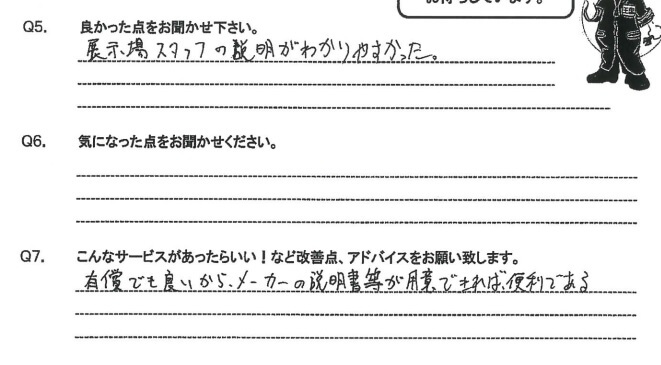 お待ちしています。
Q5. 良かった点をお聞かせ下さい。
展示場スタッフの説明がわかりやすかった。
Q6. 気になった点をお聞かせください。
Q7. こんなサービスがあったらいい！など改善点、アドバイスをお願い致します。
有償でも良いから、メーカーの説明書等が用意できれば、便利である